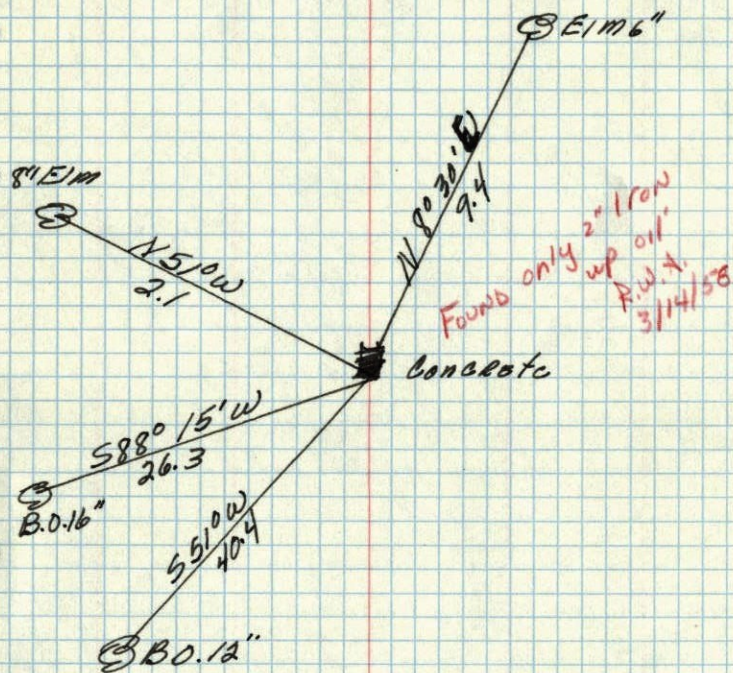 Elm 6"
8" Elm
N 8° 30' E
9.4
N 51° W
2.1
Found only 2" Iron
up
R.W.A.
3/14/58
Concrete
S 88° 15' W
26.3
B.O. 16"
S 51° W
40.4
B.O. 12"